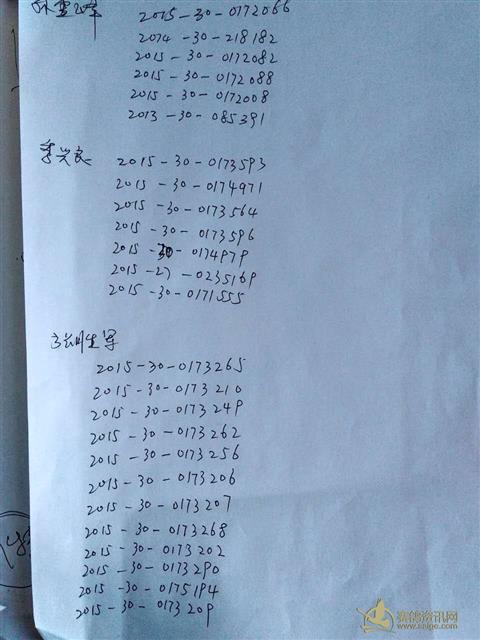 2015-30-0172066
2014-30-218182
2015-30-0172082
2015-30-0172088
2015-30-0172008
2013-30-085391
李兴良 2015-30-0173593
2015-30-0174971
2015-30-0173564
2015-30-0173596
2015-30-0174979
2015-27-0235169
2015-30-0171555
2015-30-0173265
2015-30-0173210
2015-30-0173249
2015-30-0173262
2015-30-0173256
2015-30-0173206
2015-30-0173207
2015-30-0173268
2015-30-0173202
2015-30-0173290
2015-30-0175194
2015-30-0173209
赛鸽资讯网
www.saige.com